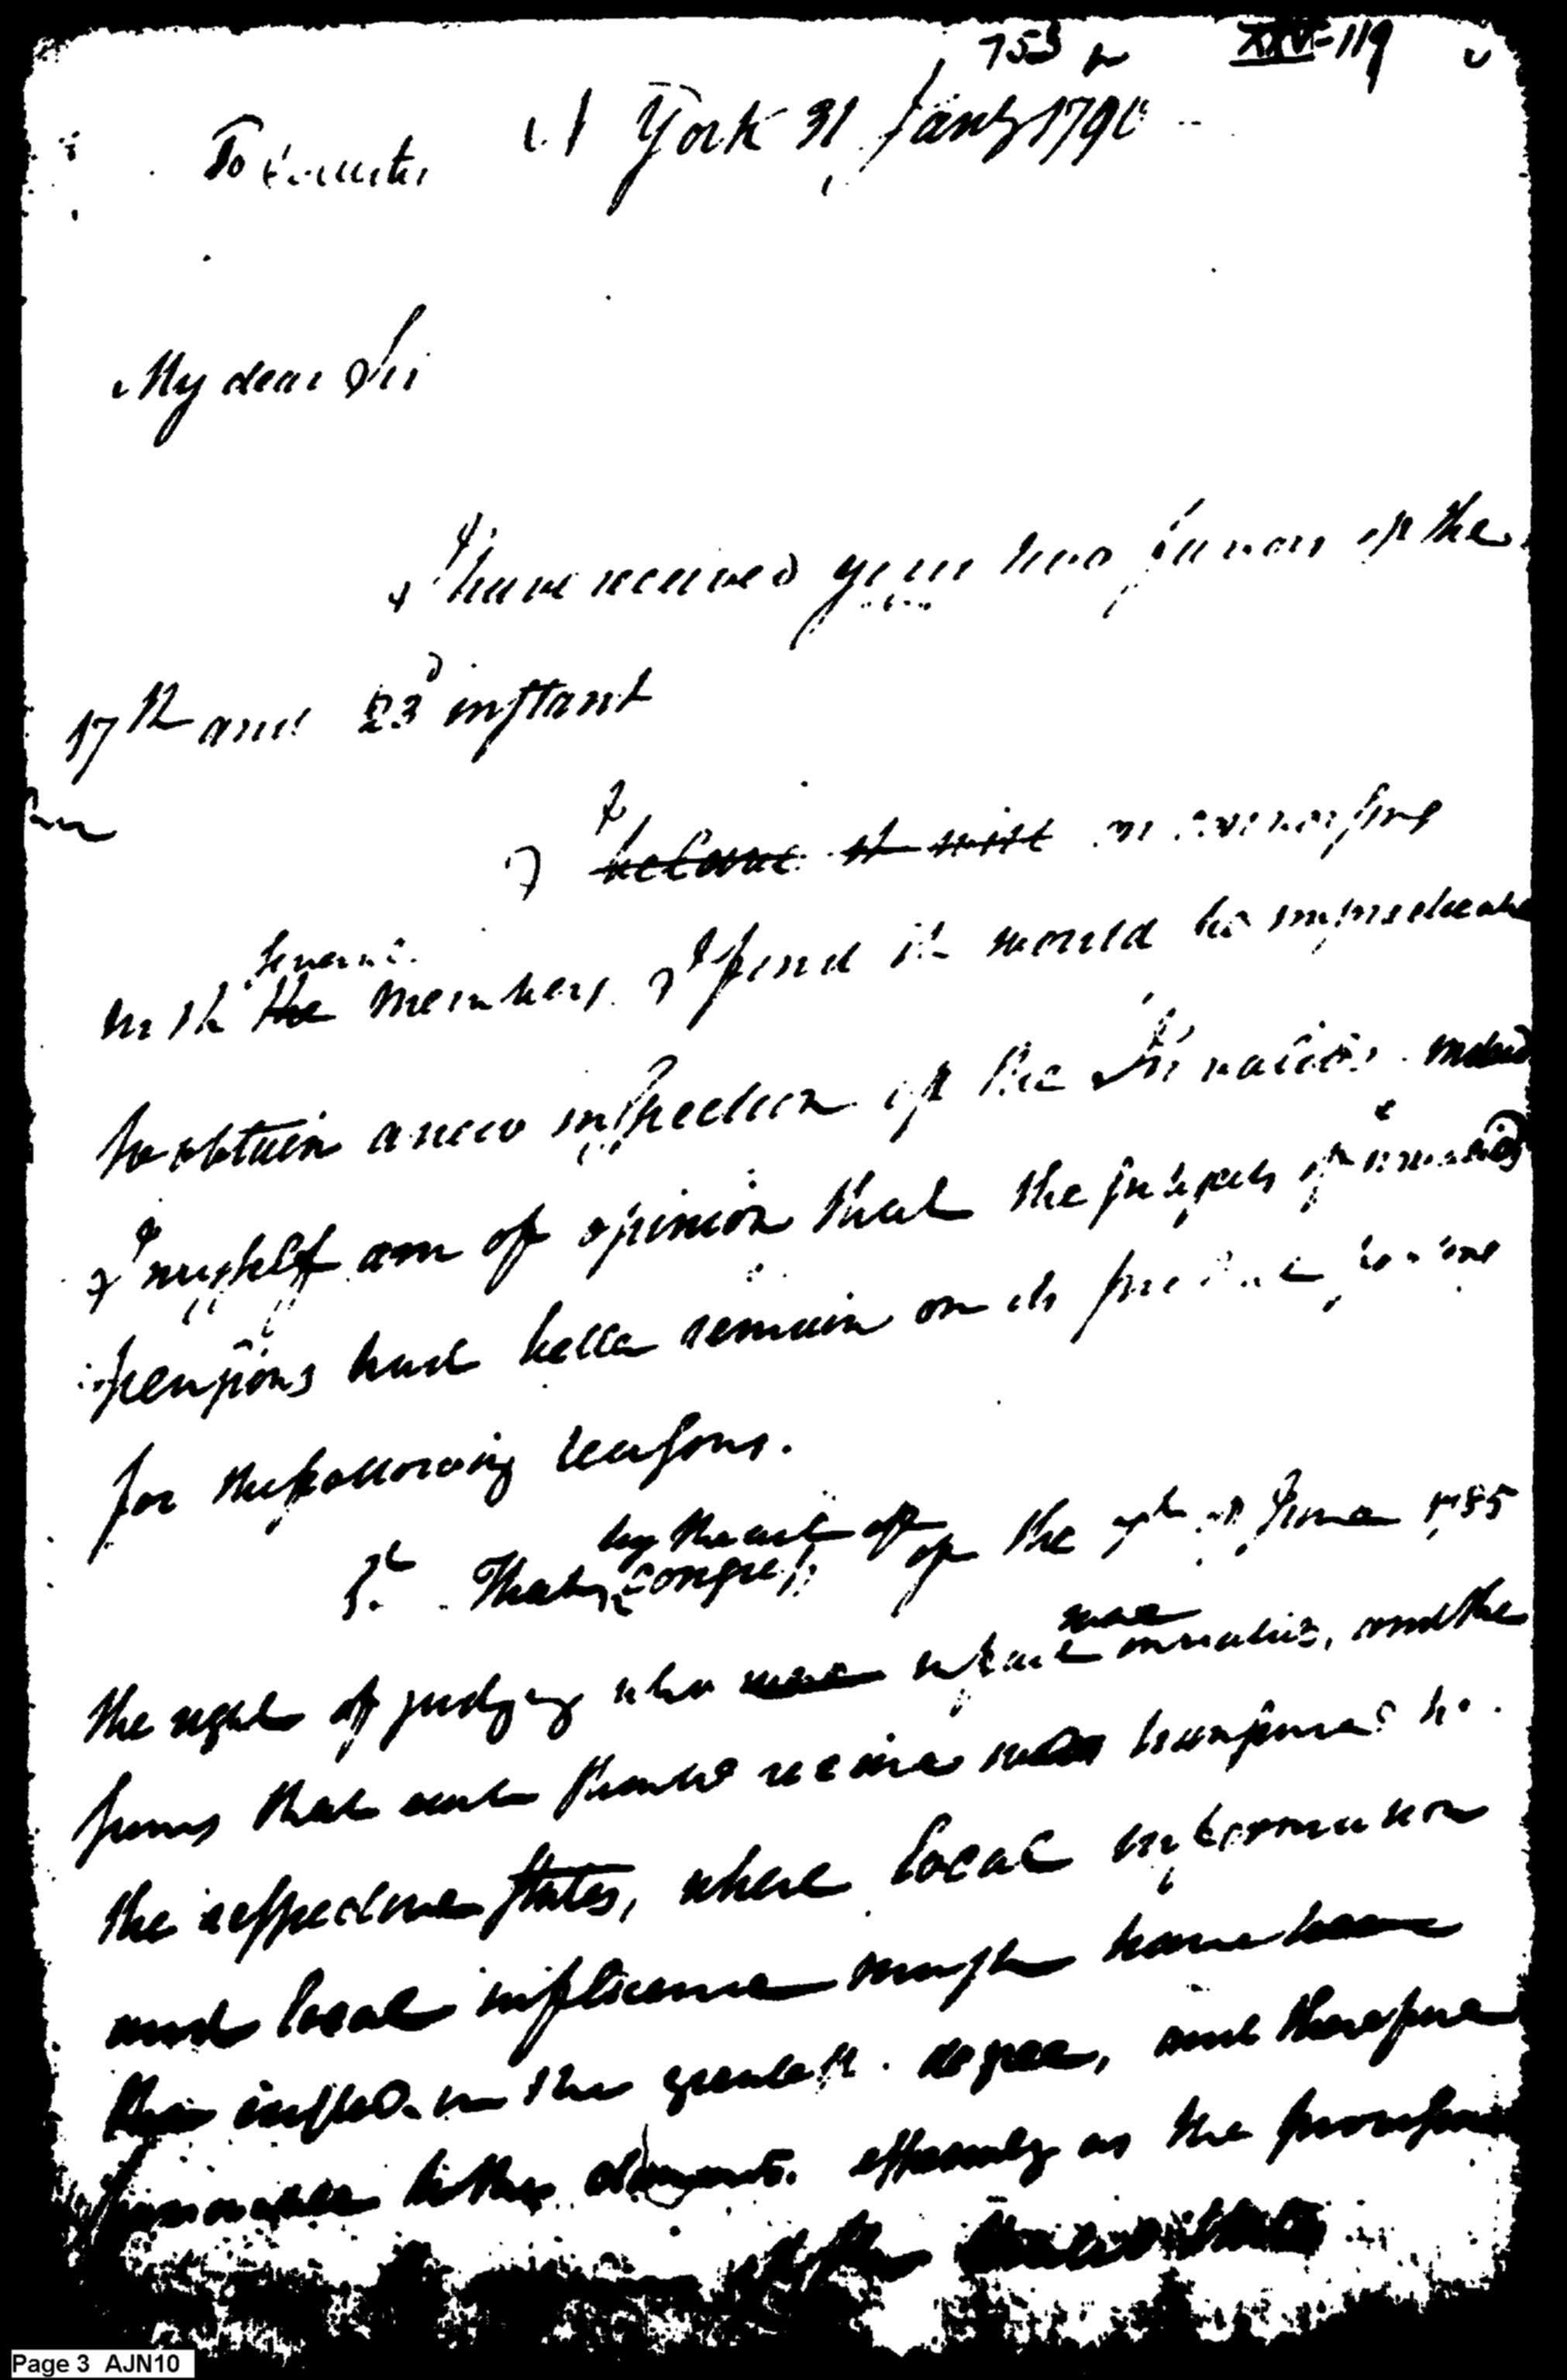 753 XXV-119
N York 31 Jany 1790
To
My dear Sir
I have received your two favors of the
17th and 23d instant
I believe it will in conversing
with the several members I find it would be impracticable
to obtain a new inspection of the Invalids. indeed
I myself am of opinion that the subject of invalid
pensions had better remain on its present footing
for the following reasons.
1st. That by the act of Congress of the 7th of June 1785
the right of judging who were were invalids, and the
sums that each should receive was transferred to
the respective states, where local information
and local influence might have been
in the greatest degree, and therefore
favorable to the as the
of the
Page 3 AJN10